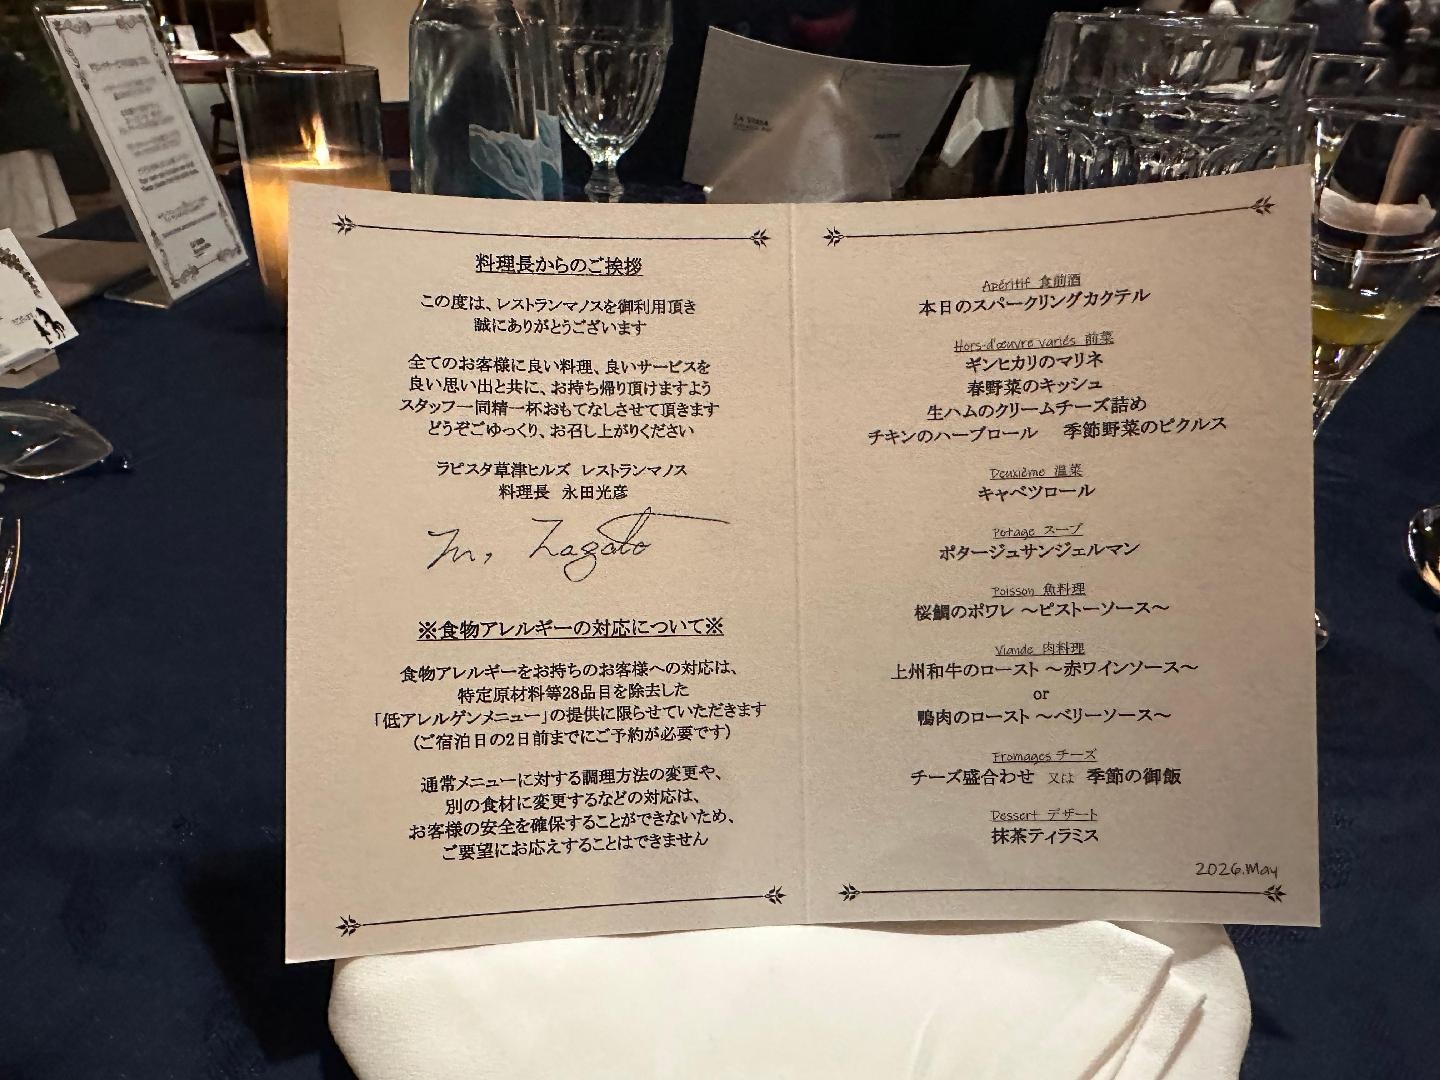 料理長からのご挨拶
この度は、レストランマノスを御利用頂き
誠にありがとうございます
全てのお客様に良い料理、良いサービスを
良い思い出と共に、お持ち帰り頂けますよう
スタッフ一同精一杯おもてなしさせて頂きます
どうぞごゆっくり、お召し上がりください
ラビスタ草津ヒルズ レストランマノス
料理長 永田光彦
※食物アレルギーの対応について※
食物アレルギーをお持ちのお客様への対応は、
特定原材料等28品目を除去した
「低アレルゲンメニュー」の提供に限らせていただきます
(ご宿泊日の2日前までにご予約が必要です)
通常メニューに対する調理方法の変更や、
別の食材に変更するなどの対応は、
お客様の安全を確保することができないため、
ご要望にお応えすることはできません
Apéritif 食前酒
本日のスパークリングカクテル
Hors-d'œuvre variés 前菜
ギンヒカリのマリネ
春野菜のキッシュ
生ハムのクリームチーズ詰め
チキンのハーブロール 季節野菜のピクルス
Deuxième 温菜
キャベツロール
Potage スープ
ポタージュサンジェルマン
Poisson 魚料理
桜鯛のポワレ ～ピストーソース～
Viande 肉料理
上州和牛のロースト ～赤ワインソース～
or
鴨肉のロースト ～ベリーソース～
Fromages チーズ
チーズ盛合わせ 又は 季節の御飯
Dessert デザート
抹茶ティラミス
2026.May